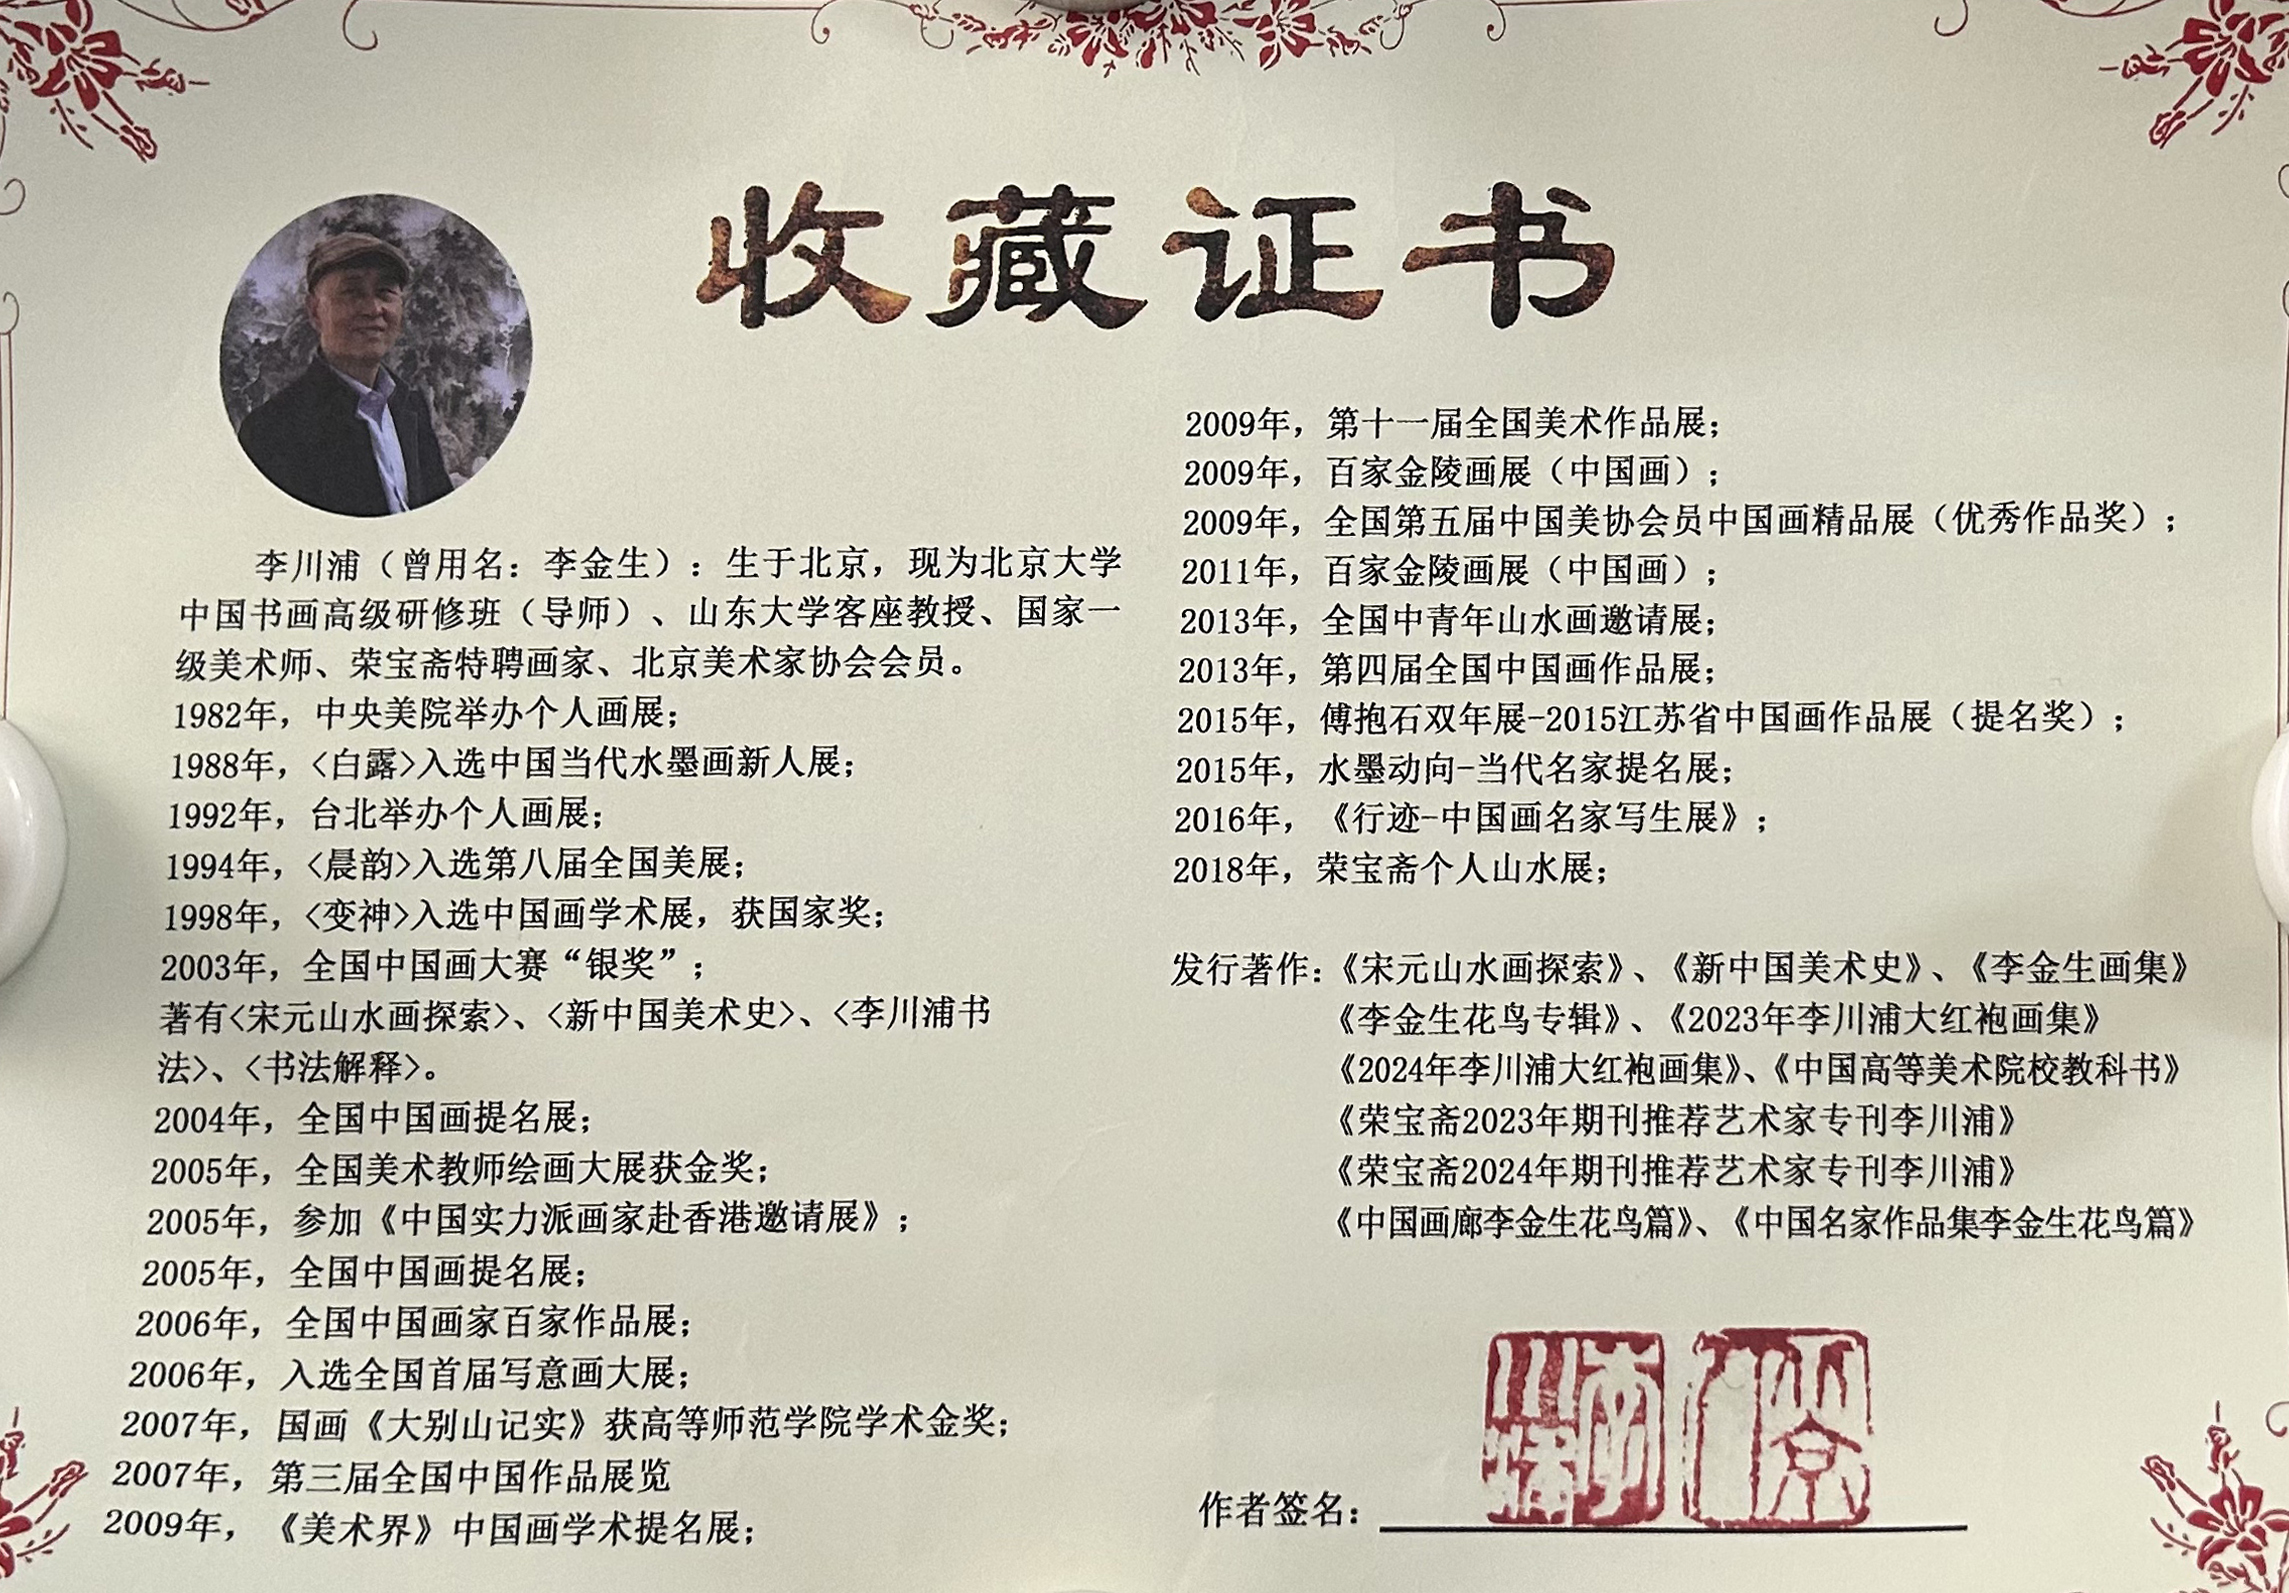 收藏证书
李川浦（曾用名：李金生）：生于北京，现为北京大学
中国书画高级研修班（导师）、山东大学客座教授、国家一
级美术师、荣宝斋特聘画家、北京美术家协会会员。
1982年，中央美院举办个人画展；
1988年，<白露>入选中国当代水墨画新人展；
1992年，台北举办个人画展；
1994年，<晨韵>入选第八届全国美展；
1998年，<变神>入选中国画学术展，获国家奖；
2003年，全国中国画大赛“银奖”；
著有<宋元山水画探索>、<新中国美术史>、<李川浦书
法>、<书法解释>。
2004年，全国中国画提名展；
2005年，全国美术教师绘画大展获金奖；
2005年，参加《中国实力派画家赴香港邀请展》；
2005年，全国中国画提名展；
2006年，全国中国画家百家作品展；
2006年，入选全国首届写意画大展；
2007年，国画《大别山记实》获高等师范学院学术金奖；
2007年，第三届全国中国作品展览
2009年，《美术界》中国画学术提名展；
2009年，第十一届全国美术作品展；
2009年，百家金陵画展（中国画）；
2009年，全国第五届中国美协会员中国画精品展（优秀作品奖）；
2011年，百家金陵画展（中国画）；
2013年，全国中青年山水画邀请展；
2013年，第四届全国中国画作品展；
2015年，傅抱石双年展-2015江苏省中国画作品展（提名奖）；
2015年，水墨动向-当代名家提名展；
2016年，《行迹-中国画名家写生展》；
2018年，荣宝斋个人山水展；
发行著作：《宋元山水画探索》、《新中国美术史》、《李金生画集》
《李金生花鸟专辑》、《2023年李川浦大红袍画集》
《2024年李川浦大红袍画集》、《中国高等美术院校教科书》
《荣宝斋2023年期刊推荐艺术家专刊李川浦》
《荣宝斋2024年期刊推荐艺术家专刊李川浦》
《中国画廊李金生花鸟篇》、《中国名家作品集李金生花鸟篇》
作者签名：